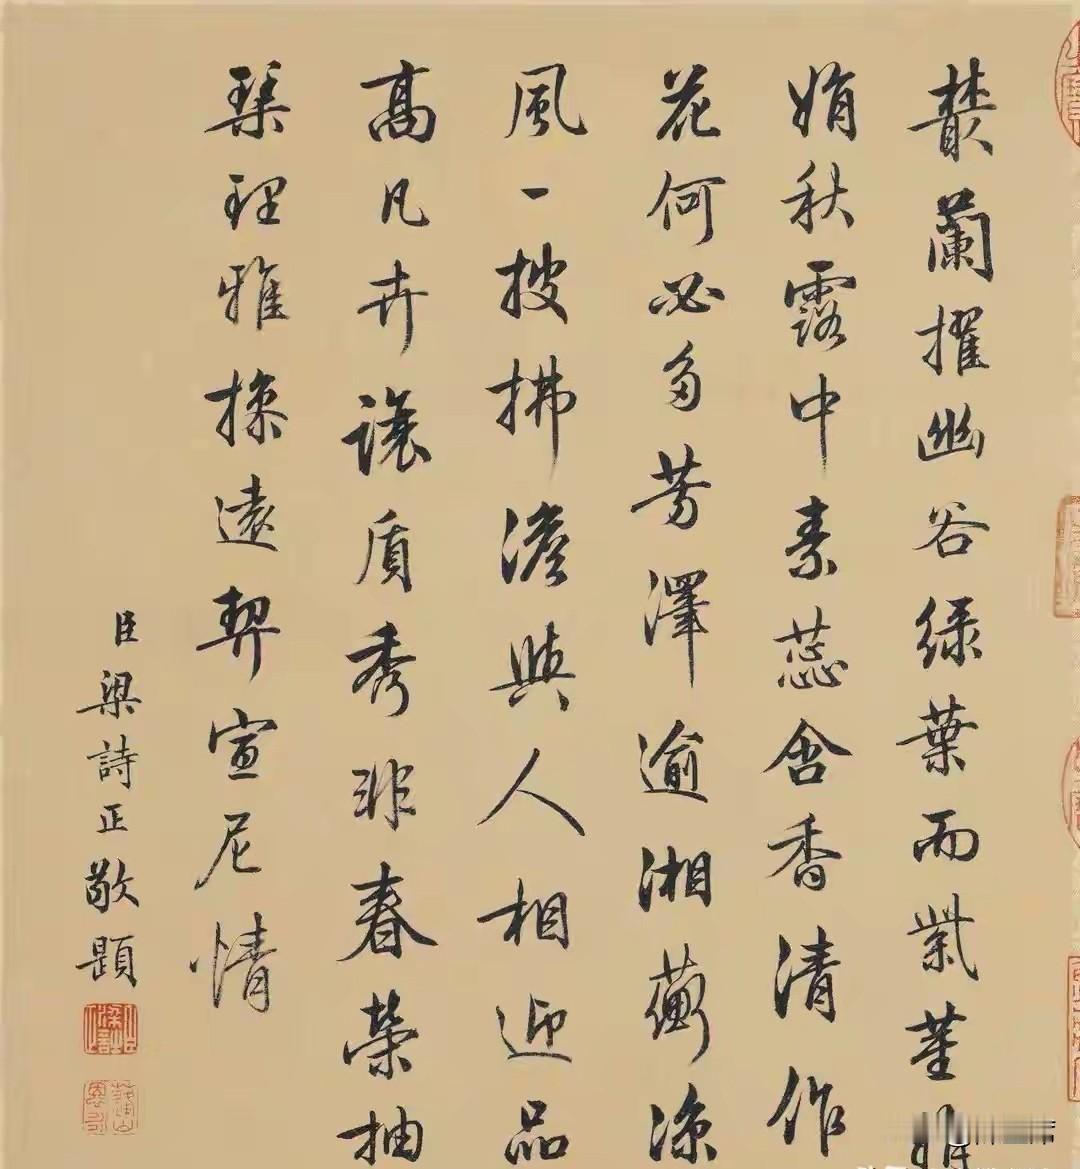 叢蘭擢幽谷綠葉而紫莖娟
娟秋露中素蕊含香清作
花何必多芳澤逾湘蘅涼
風一披拂澹與人相迎品
高凡卉讓盾秀非春榮抽
琹理雅操遠契宣尼情
臣梁詩正敬題